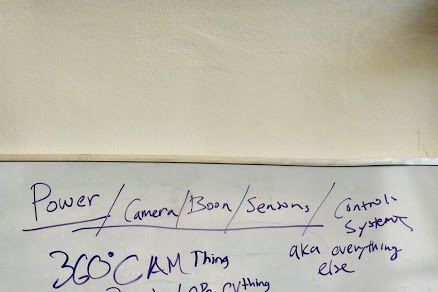 Power / Camera / Boom / Sensors / Controls
Systems
aka everything
else
360° CAM Thing